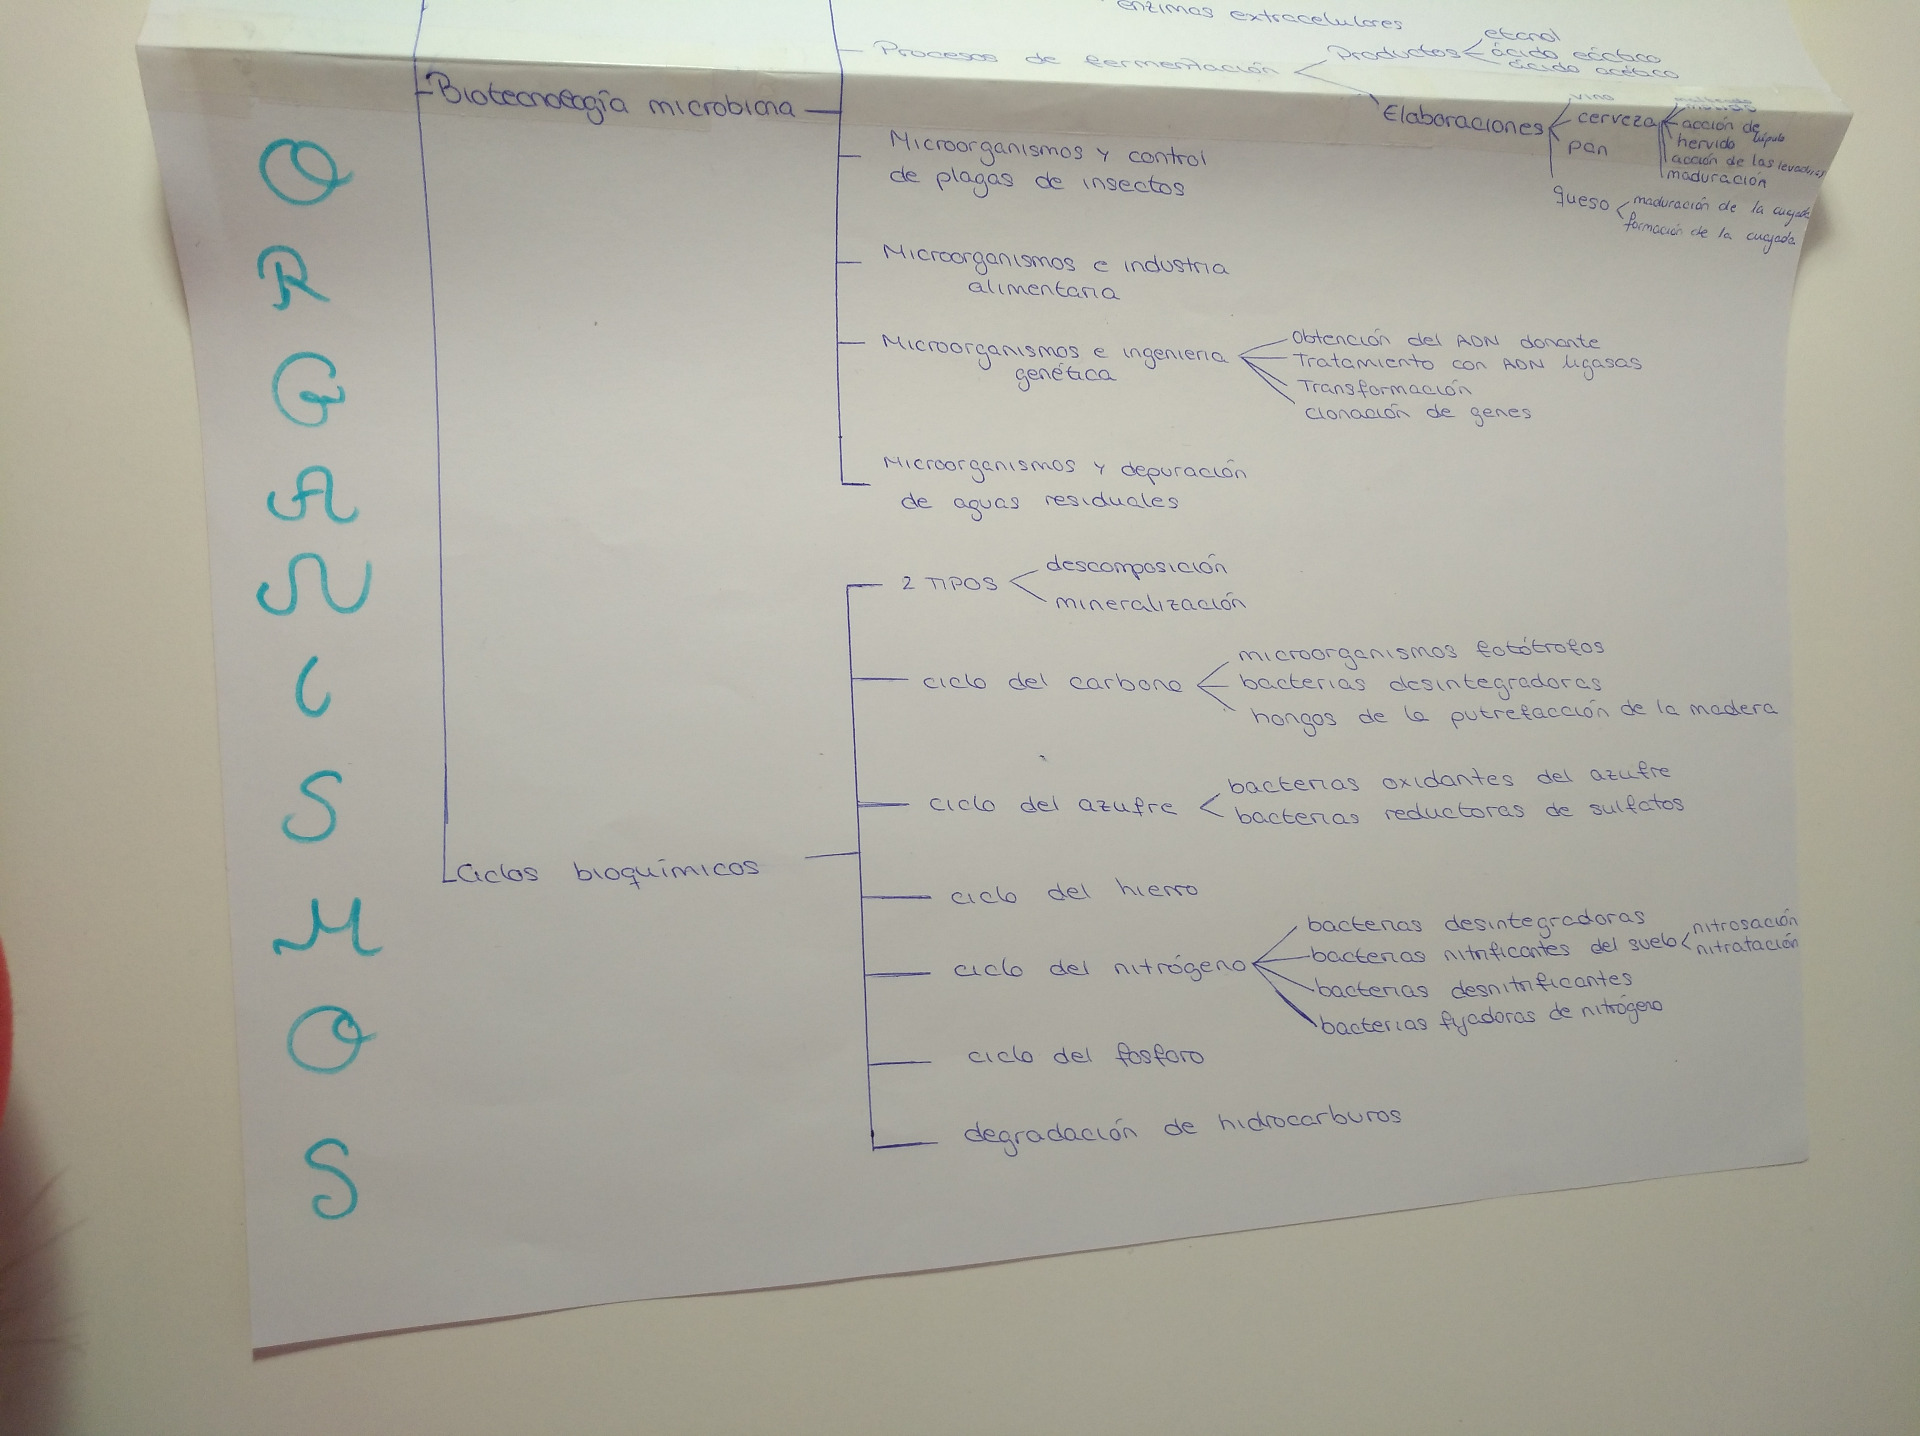 enzimas extracelulares
Procesos de fermentación
Productos
etanol
ácido láctico
ácido acético
Elaboraciones
vino
cerveza
acción de lúpulo
hervido
acción de las levaduras
maduración
pan
queso
maduración de la cuajada
formación de la cuajada
Biotecnología microbiana
Microorganismos y control
de plagas de insectos
Microorganismos e industria
alimentaria
Microorganismos e ingenieria
genética
Obtención del ADN donante
Tratamiento con ADN ligasas
Transformación
clonación de genes
Microorganismos y depuración
de aguas residuales
Ciclos bioquímicos
2 TIPOS
descomposición
mineralización
ciclo del carbono
microorganismos fotótrofos
bacterias desintegradoras
hongos de la putrefacción de la madera
ciclo del azufre
bacterias oxidantes del azufre
bacterias reductoras de sulfatos
ciclo del hierro
ciclo del nitrógeno
bacterias desintegradoras
bacterias nitrificantes del suelo
nitrosación
nitratación
bacterias desnitrificantes
bacterias fijadoras de nitrógeno
ciclo del fosforo
degradación de hidrocarburos
O
R
G
A
N
I
S
M
O
S